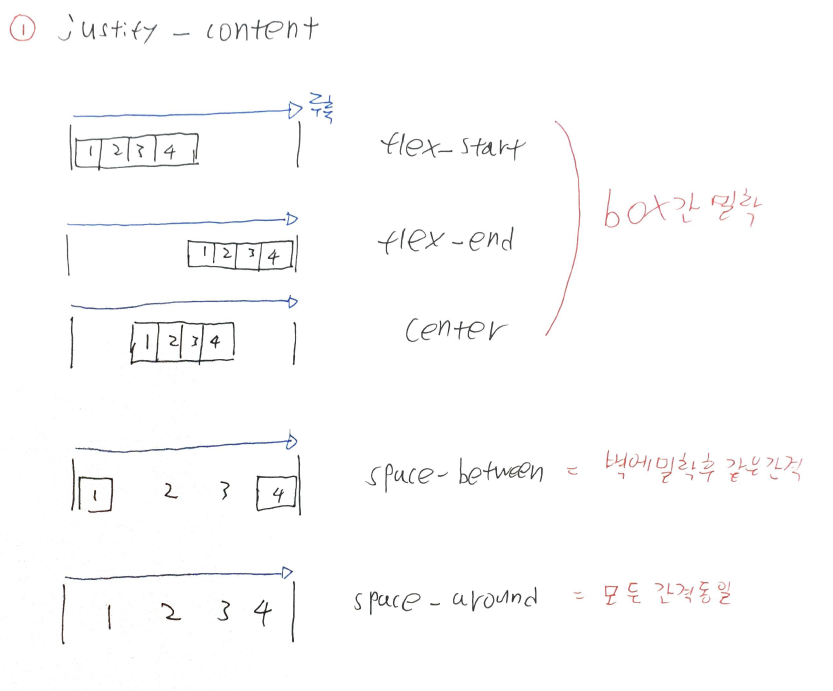 ① justify - content
주축
1 2 3 4 flex-start
box간 밀착
1 2 3 4 flex-end
1 2 3 4 center
1 2 3 4 space-between = 벽에밀착후 같은간격
1 2 3 4 space-around = 모든 간격동일